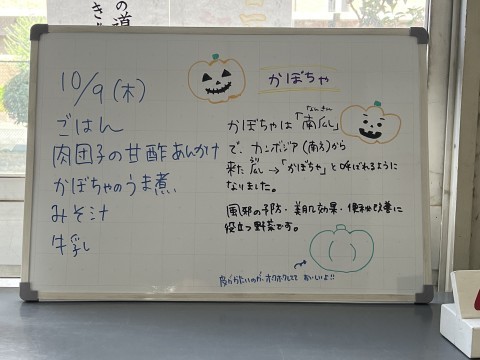 の道
き
10/9(木)
ごはん
肉団子の甘酢あんかけ
かぼちゃのうま煮
みそ汁
牛乳
かぼちゃ
なんきん
かぼちゃは「南瓜」
で、カンボジア(南方)から
来た瓜→「かぼちゃ」と呼ばれるように
なりました。
風邪の予防・美肌効果・便秘改善に
役立つ野菜です。
皮がかたいのが、ホクホクしてて おいしいよ!!